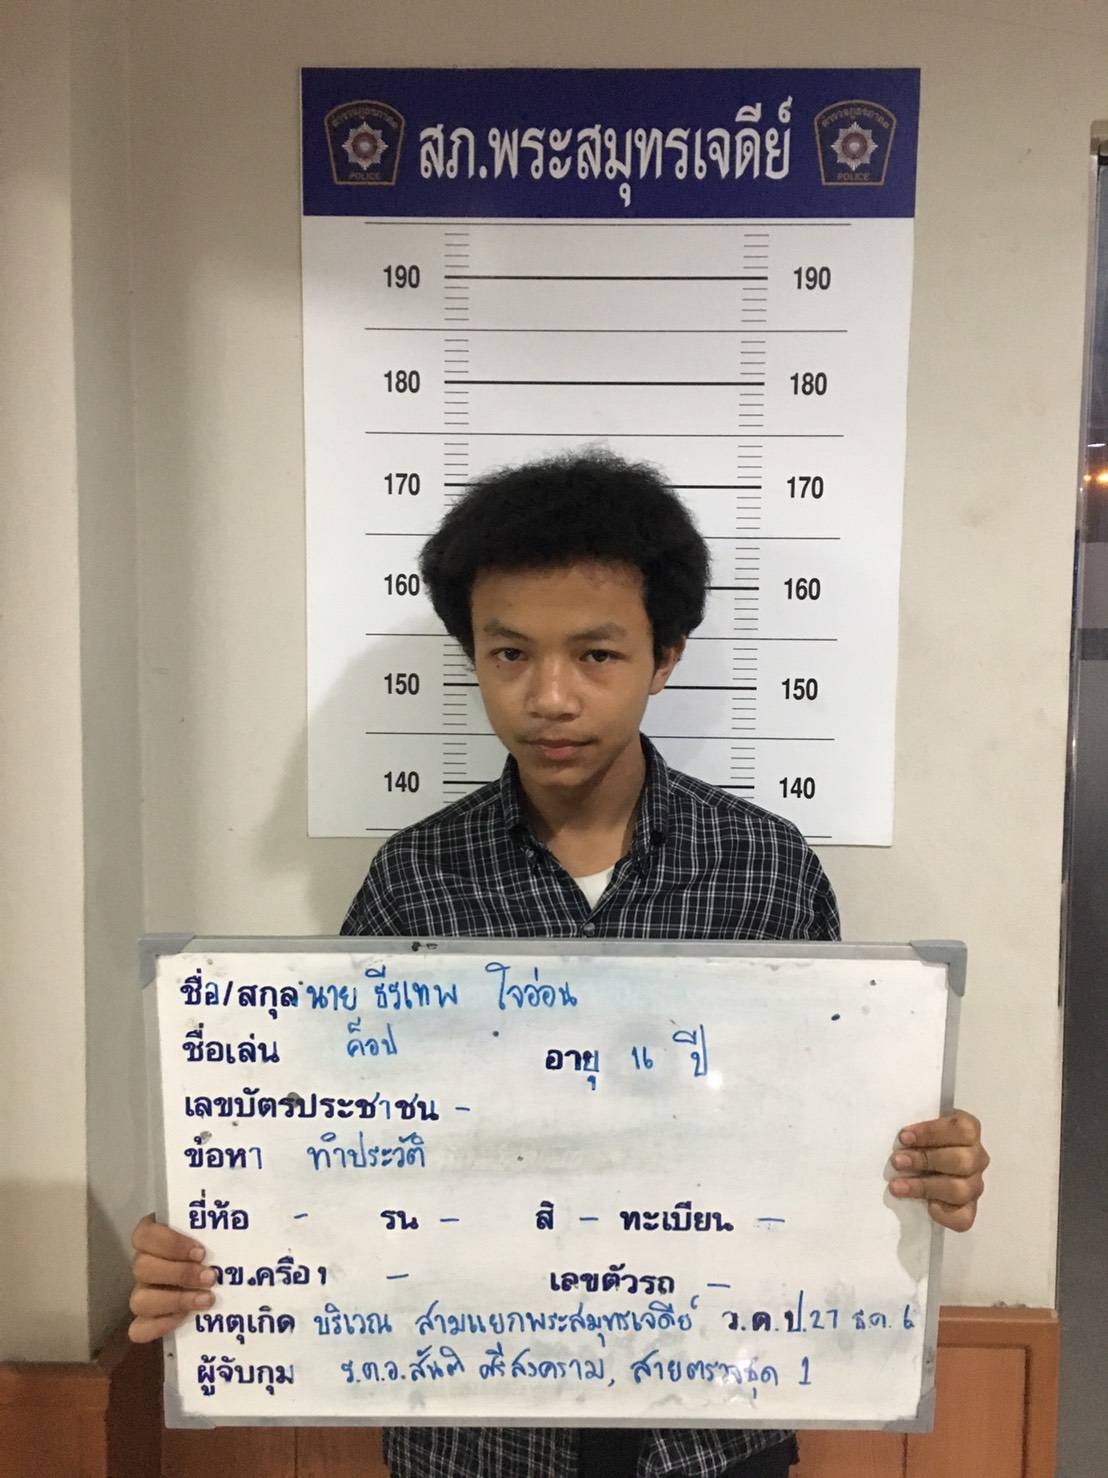 สภ.พระสมุทรเจดีย์
POLICE POLICE
190 190
180 180
170 170
160 160
150 150
140 140
ชื่อ/สกุล นาย ธีรเทพ ใจอ่อน
ชื่อเล่น ค็อป อายุ 16 ปี
เลขบัตรประชาชน -
ข้อหา ทำประวัติ
ยี่ห้อ - รน - สี - ทะเบียน -
ลข.ครื่อง - เลขตัวรถ -
เหตุเกิด บริเวณ สามแยกพระสมุทรเจดีย์ ว.ด.ป.27 ธ.ค. 6
ผู้จับกุม ร.ต.อ.สันติ ศรีสงคราม, สายตรวจชุด 1